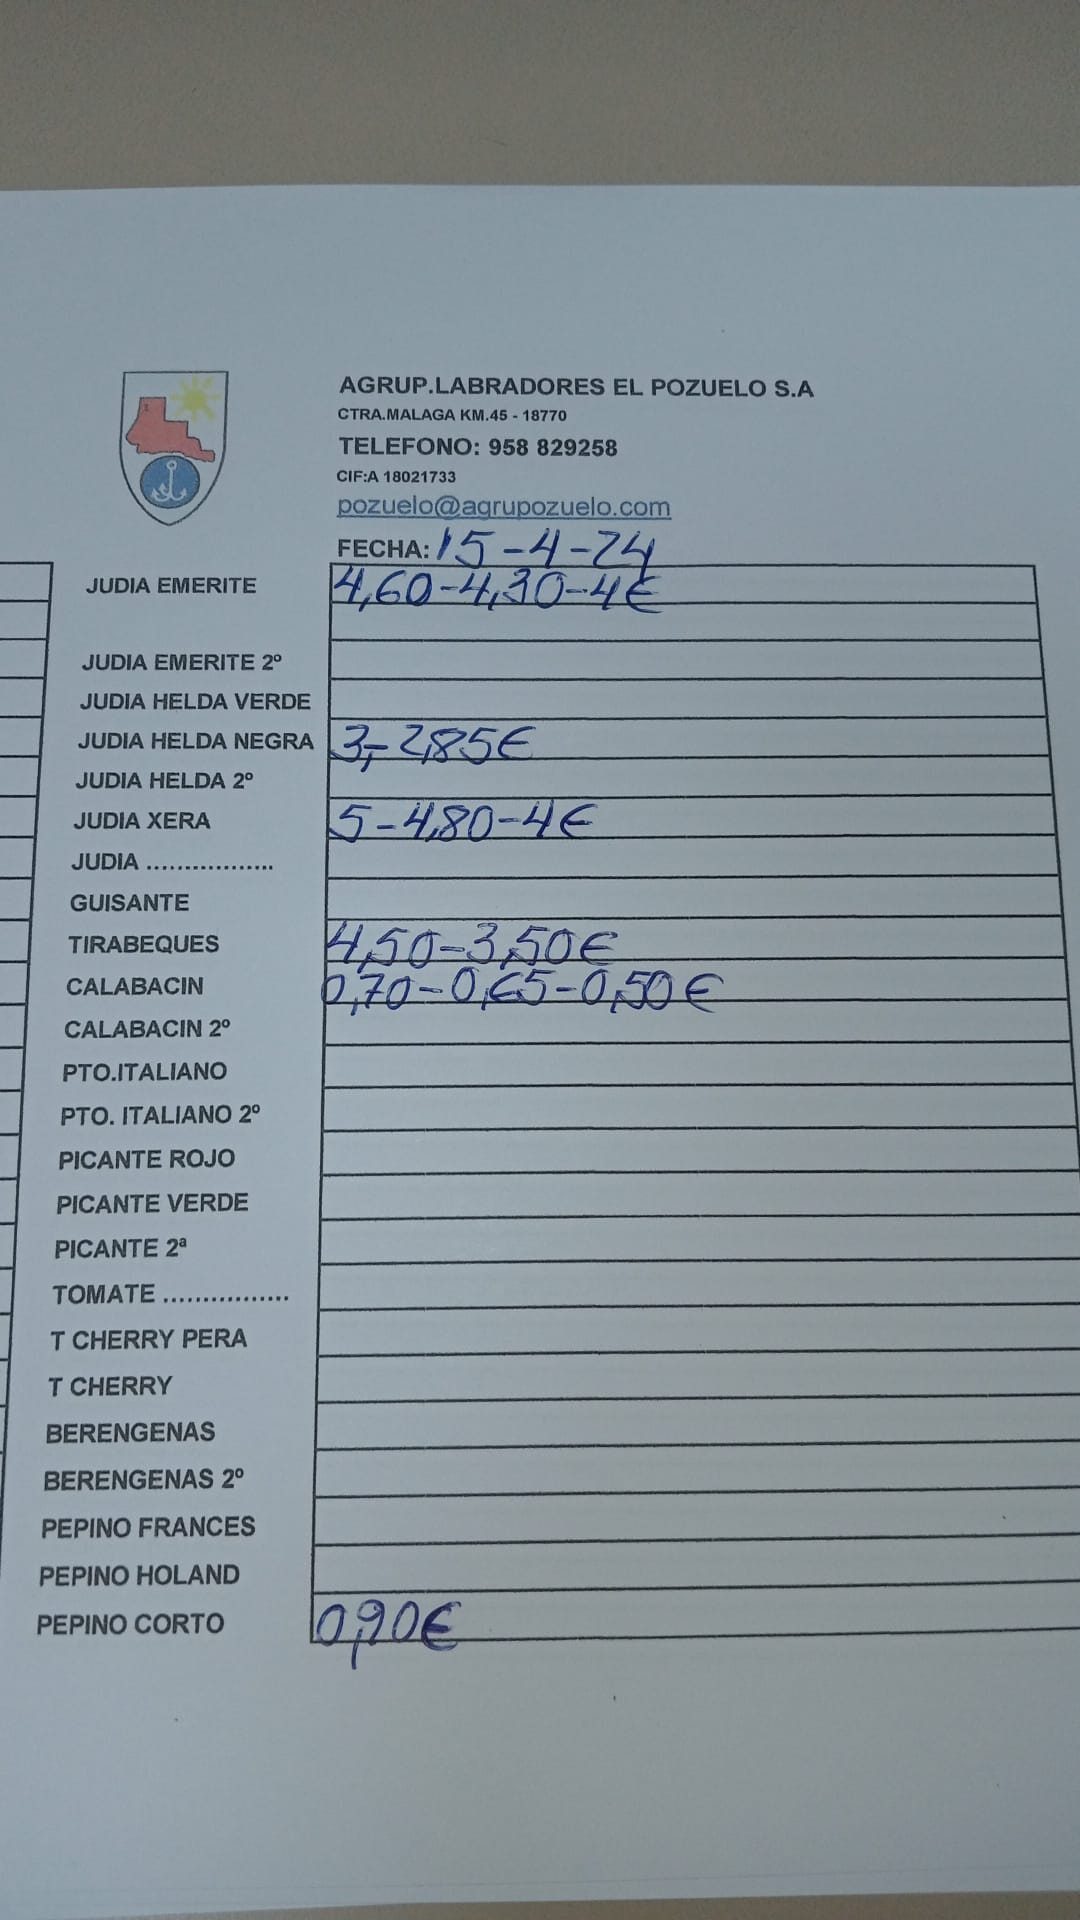 AGRUP.LABRADORES EL POZUELO S.A
CTRA.MALAGA KM.45 - 18770
TELEFONO: 958 829258
CIF:A 18021733
pozuelo@agrupozuelo.com
FECHA: 15-4-24
JUDIA EMERITE 4,60-4,30-4€
JUDIA EMERITE 2º
JUDIA HELDA VERDE
JUDIA HELDA NEGRA 3,-2,85€
JUDIA HELDA 2º
JUDIA XERA 5-4,80-4€
JUDIA ................
GUISANTE
TIRABEQUES 4,50-3,50€
CALABACIN 0,70-0,65-0,50€
CALABACIN 2º
PTO.ITALIANO
PTO. ITALIANO 2º
PICANTE ROJO
PICANTE VERDE
PICANTE 2ª
TOMATE ................
T CHERRY PERA
T CHERRY
BERENGENAS
BERENGENAS 2º
PEPINO FRANCES
PEPINO HOLAND
PEPINO CORTO 0,90€